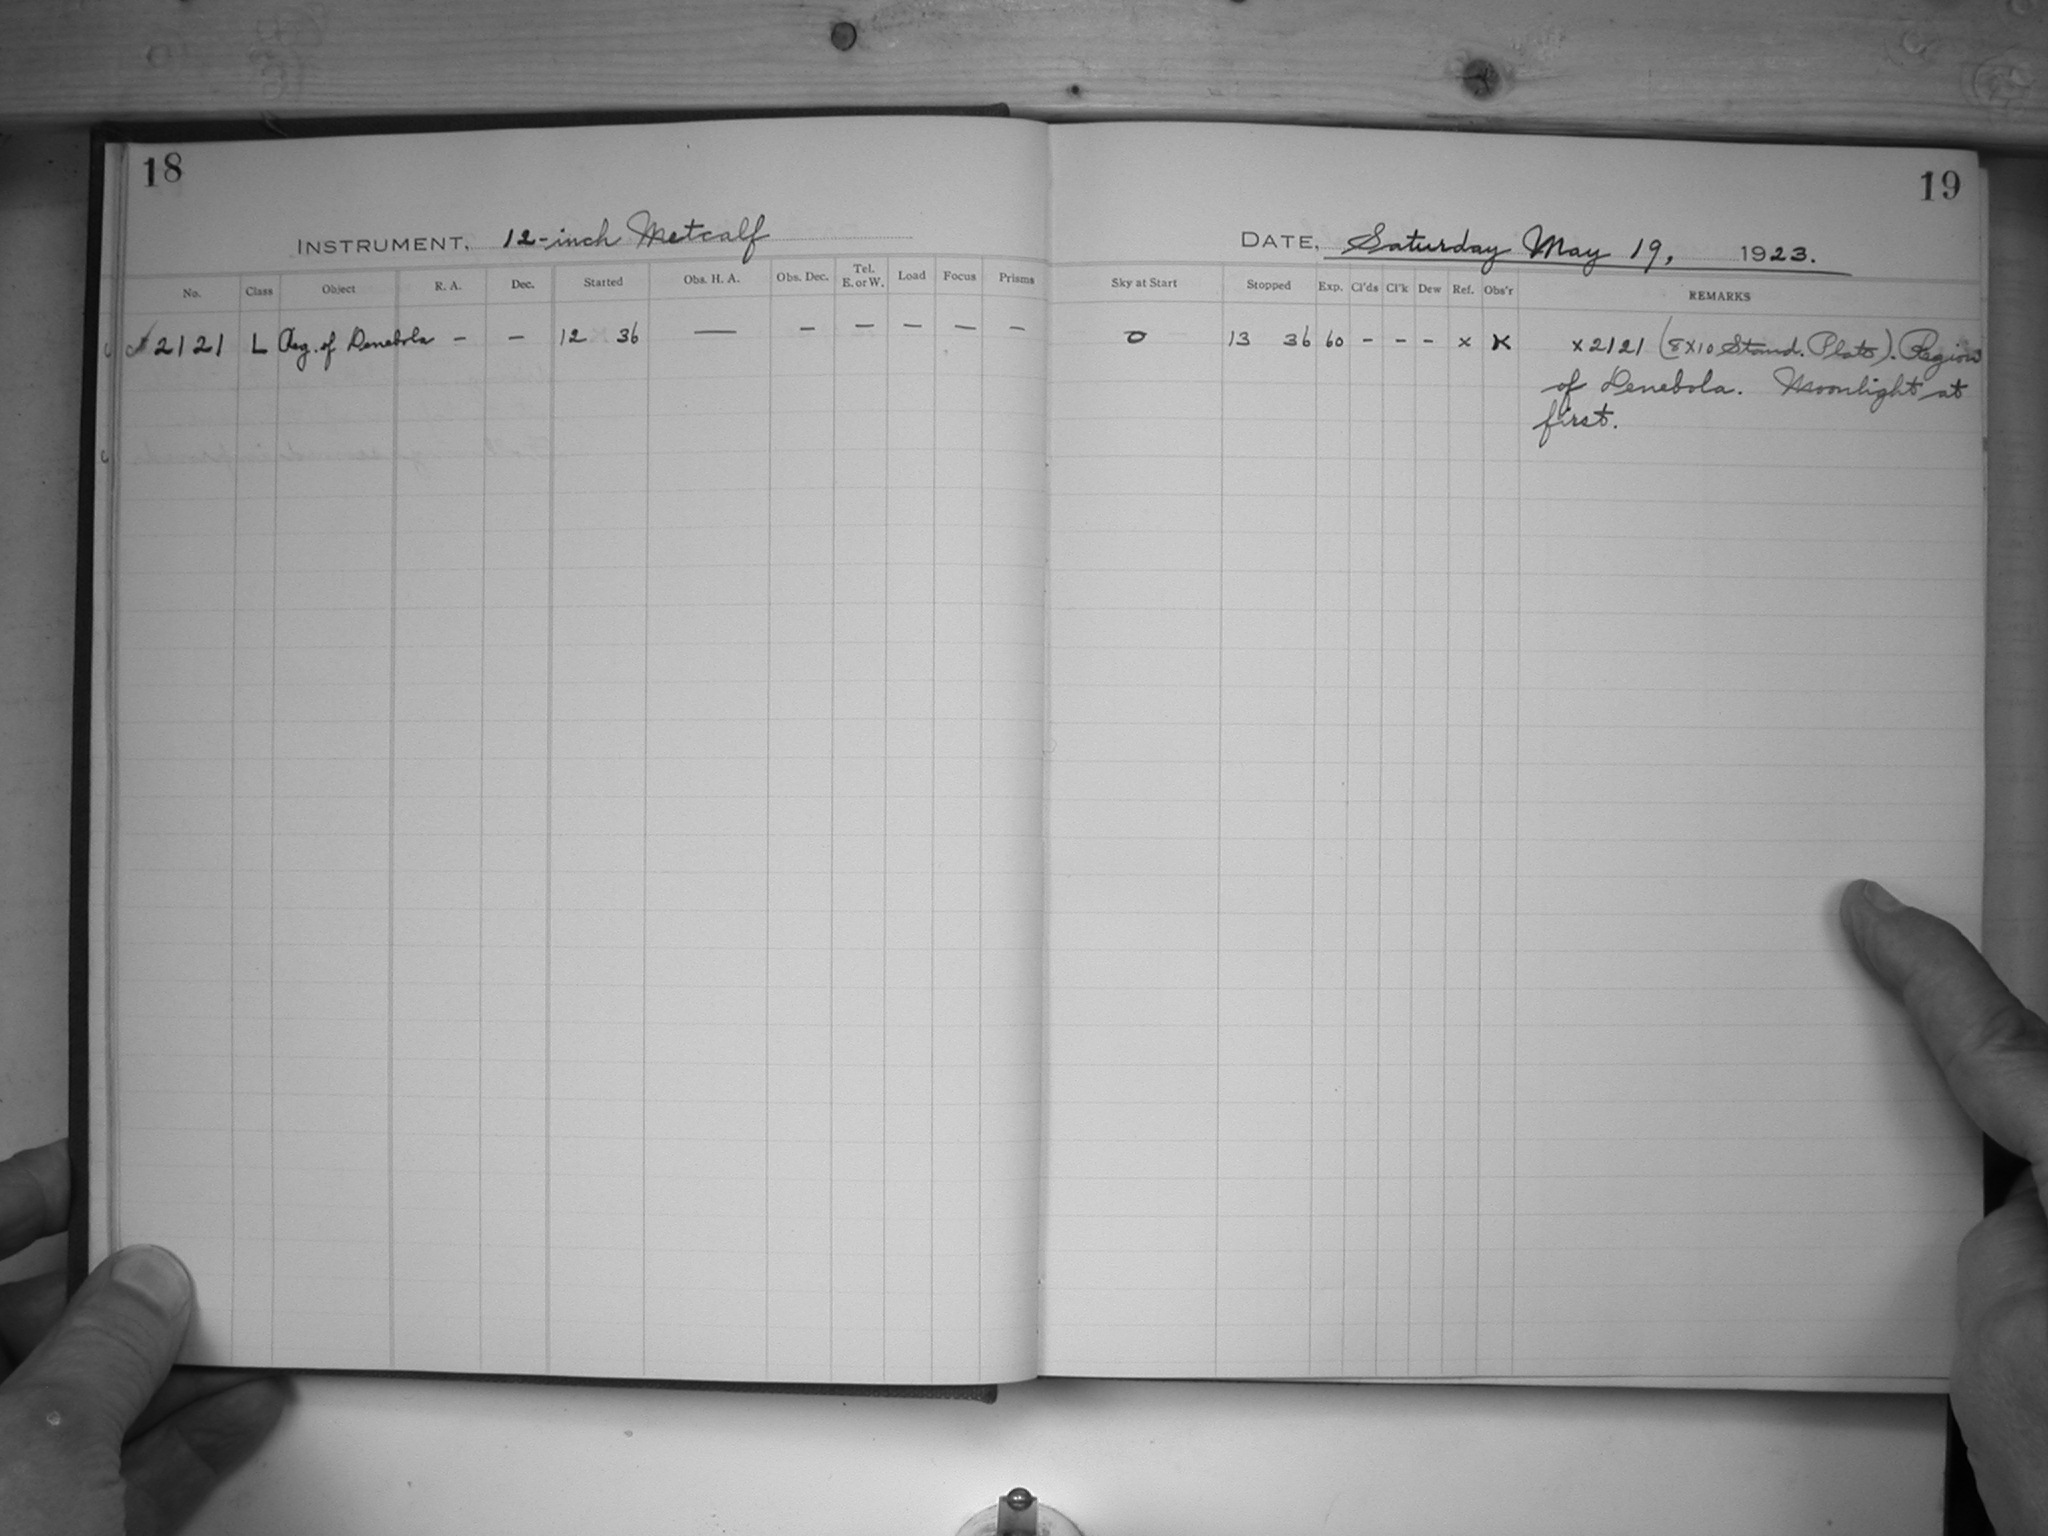 18
INSTRUMENT, 12-inch Metcalf
No. Class Object R. A. Dec. Started Obs. H. A. Obs. Dec. Tel. E. or W. Load Focus Prisms
2121 L Reg. of Denebola – – 12 36 — – – – – –
19
DATE, Saturday May 19, 1923.
Sky at Start Stopped Exp. Cl'ds Cl'k Dew Ref. Obs'r REMARKS
0 13 36 60 – – – x K x2121 (8x10 Stand. Plate). Region
of Denebola. Moonlight at
first.